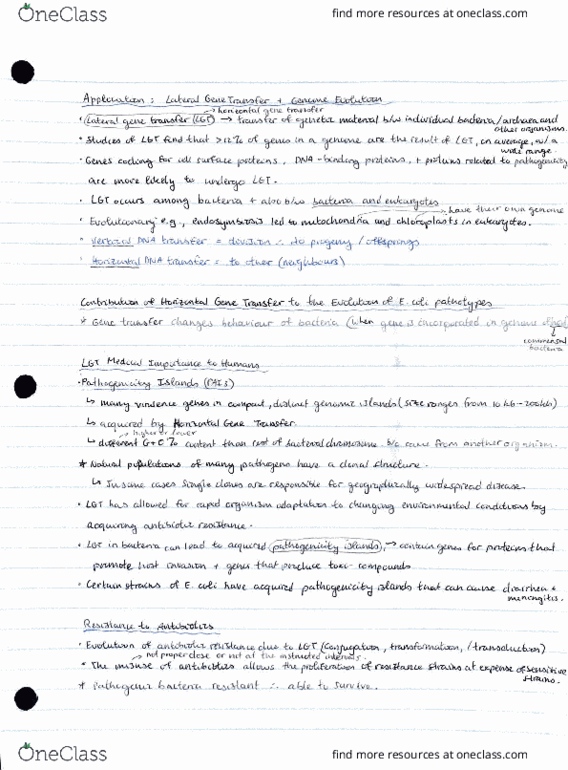 OneClass
find more resources at oneclass.com
Application: Lateral Gene Transfer + Genome Evolution
→ horizontal gene transfer
• Lateral gene transfer (LGT) → transfer of genetic material b/w individual bacteria/archaea and
other organisms.
• Studies of LGT find that >12% of genes in a genome are the result of LGT, on average, w/ a
wide range.
• Genes coding for cell surface proteins, DNA-binding proteins, + proteins related to pathogenicity
are more likely to undergo LGT.
• LGT occurs among bacteria + also b/w bacteria and eukaryotes
→ have their own genome
• Evolutionary e.g., endosymbiosis led to mitochondria and chloroplasts in eukaryotes.
• Vertical DNA transfer = division ∴ to progeny / offsprings
• Horizontal DNA transfer = to other (neighbours)
Contribution of Horizontal Gene Transfer to the Evolution of E. coli pathotypes
* Gene transfer changes behaviour of bacteria (when gene is incorporated in genome
commensal
bacteria
LGT Medical Importance to Humans
• Pathogenicity Islands (PAIs)
↳ many virulence genes in compact, distinct genomic islands (size ranges from 10 kb - 200kb)
↳ acquired by Horizontal Gene Transfer.
higher or lower
↳ different G+C % content than rest of bacterial chromosome b/c came from another organism.
* Natural populations of many pathogens have a clonal structure.
↳ In some cases single clones are responsible for geographically widespread disease.
• LGT has allowed for rapid organism adaptation to changing environmental conditions by
acquiring antibiotic resistance.
• LGT in bacteria can lead to acquired pathogenicity islands, → contain genes for proteins that
promote host invasion + genes that produce toxic compounds
• Certain strains of E. coli have acquired pathogenicity islands that can cause diarrhea +
meningitis.
Resistance to Antibiotics
• Evolution of antibiotic resistance due to LGT (conjugation, transformation, /transduction)
→ not proper dose or not at the instructed intervals.
* The misuse of antibiotics allows the proliferation of resistance strains at expense of sensitive
strains.
* Pathogenic bacteria resistant ∴ able to survive.
OneClass
find more resources at oneclass.com